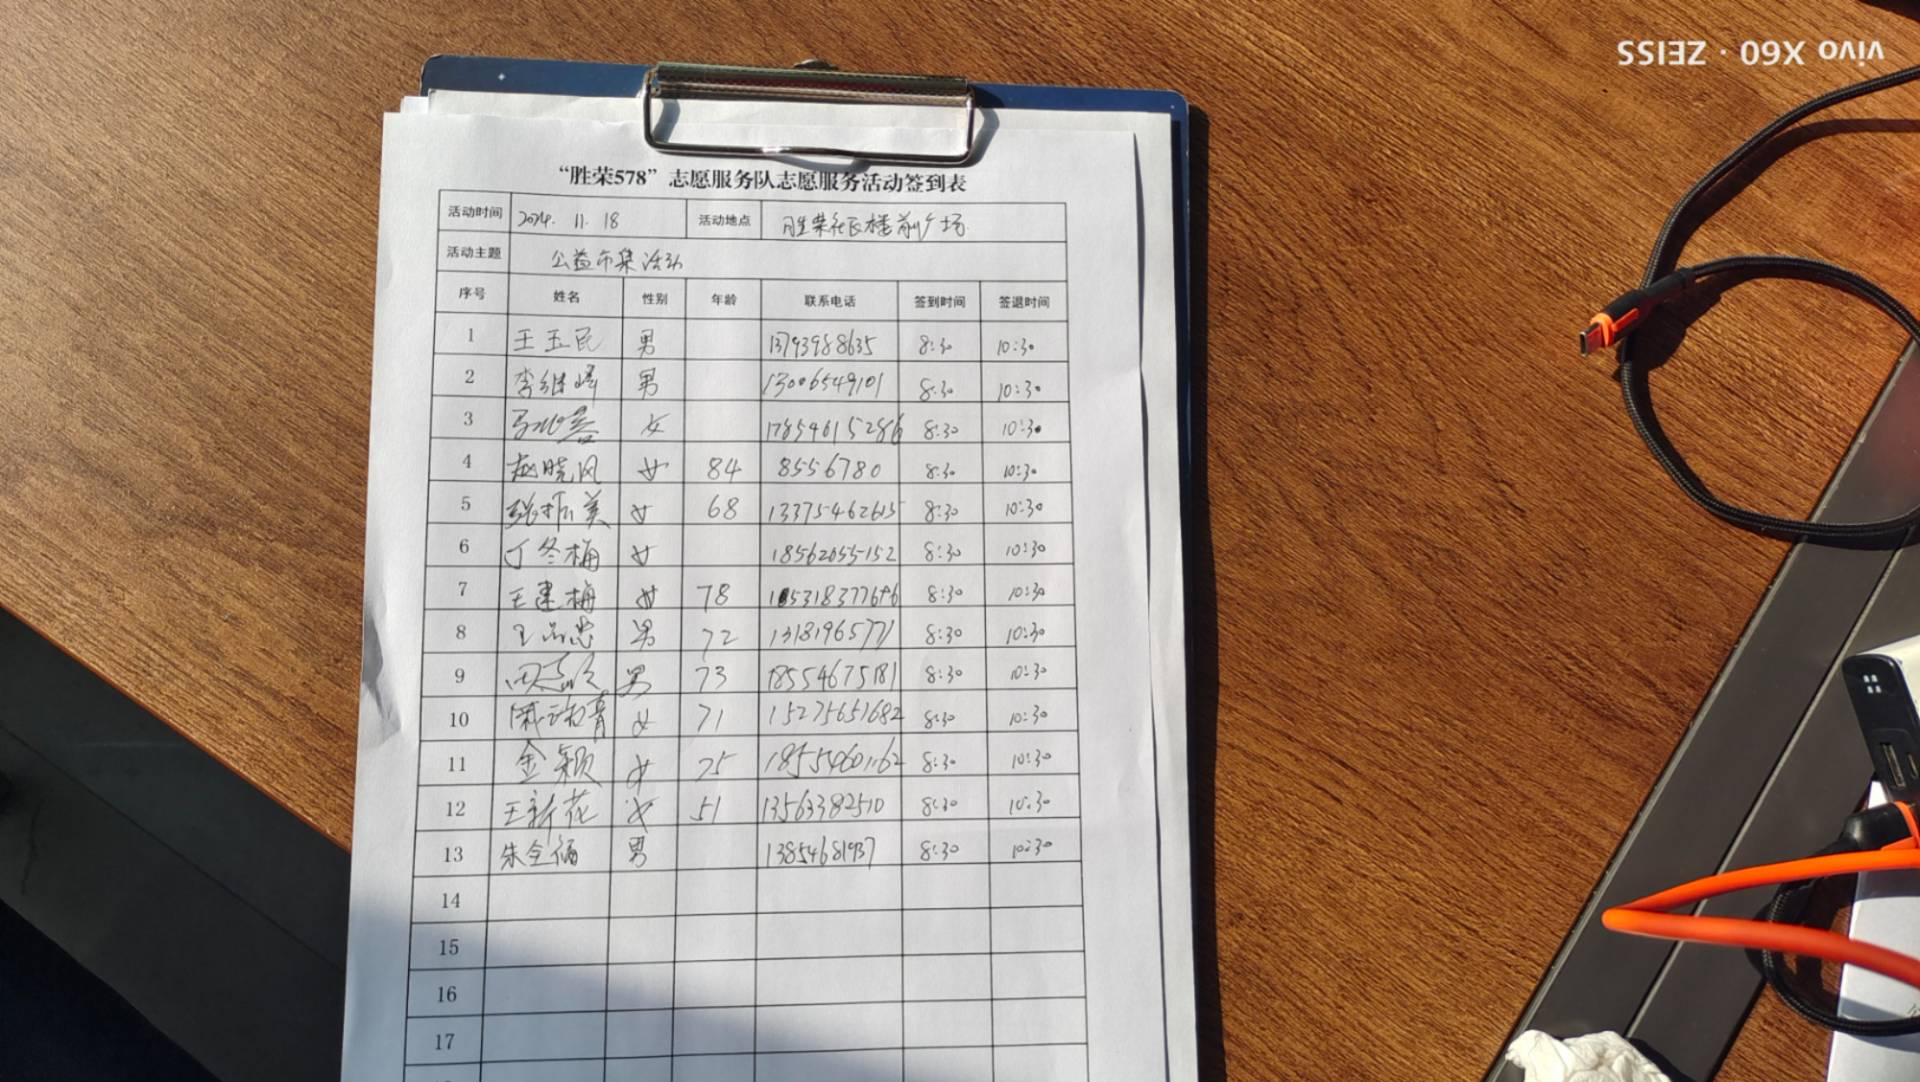 vivo X60 · ZEISS
“胜荣578”志愿服务队志愿服务活动签到表
活动时间 2024. 11. 18 活动地点 胜荣社区楼前广场
活动主题 公益市集活动
序号 姓名 性别 年龄 联系电话 签到时间 签退时间
1 王玉民 男 13793988635 8:30 10:30
2 李继峰 男 13006549101 8:30 10:30
3 女 17854615286 8:30 10:30
4 赵晓风 女 84 8556780 8:30 10:30
5 张振美 女 68 13375462615 8:30 10:30
6 丁冬梅 女 18562055152 8:30 10:30
7 王建梅 女 78 8:30 10:30
8 男 72 13181965771 8:30 10:30
9 男 73 18554675181 8:30 10:30
10 女 71 15275651682 8:30 10:30
11 金颖 女 75 18554601162 8:30 10:30
12 王新花 女 51 13563382510 8:30 10:30
13 朱全福 男 13854681937 8:30 10:30
14
15
16
17